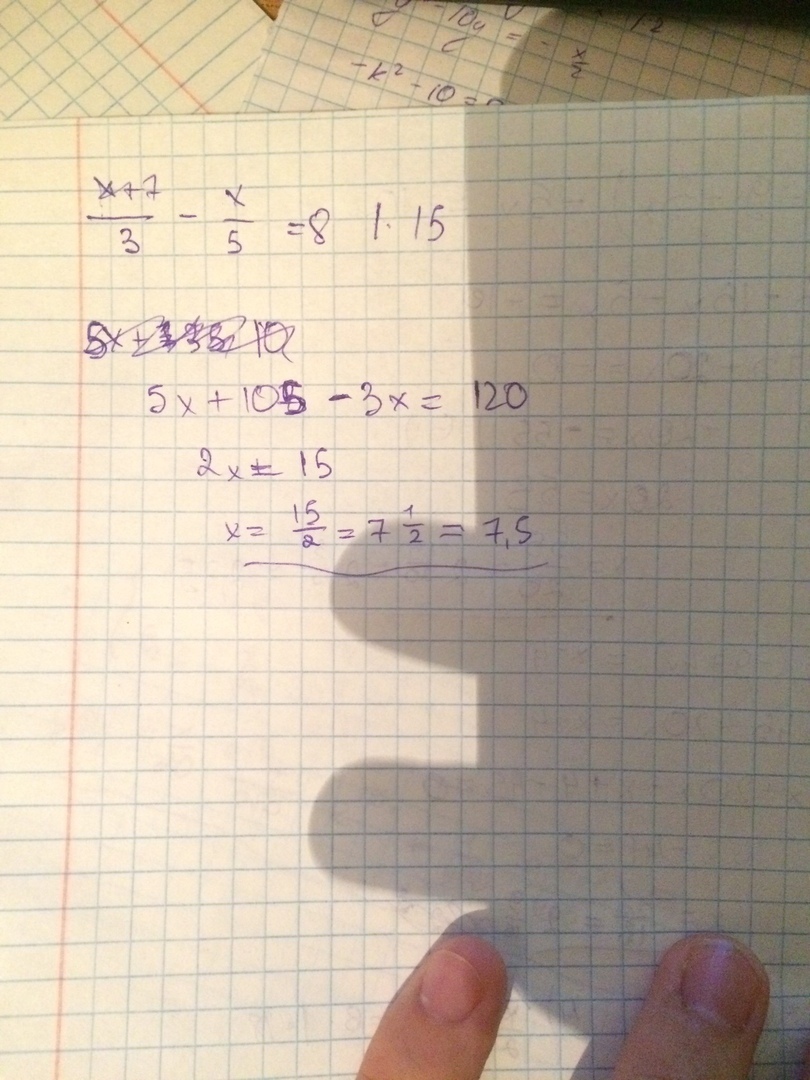 -10y
y = - x/2
-k² -10 =
(x+7)/3 - x/5 =8 |· 15
5x+105 -3x= 120
2x= 15
x= 15/2 = 7 1/2 = 7,5